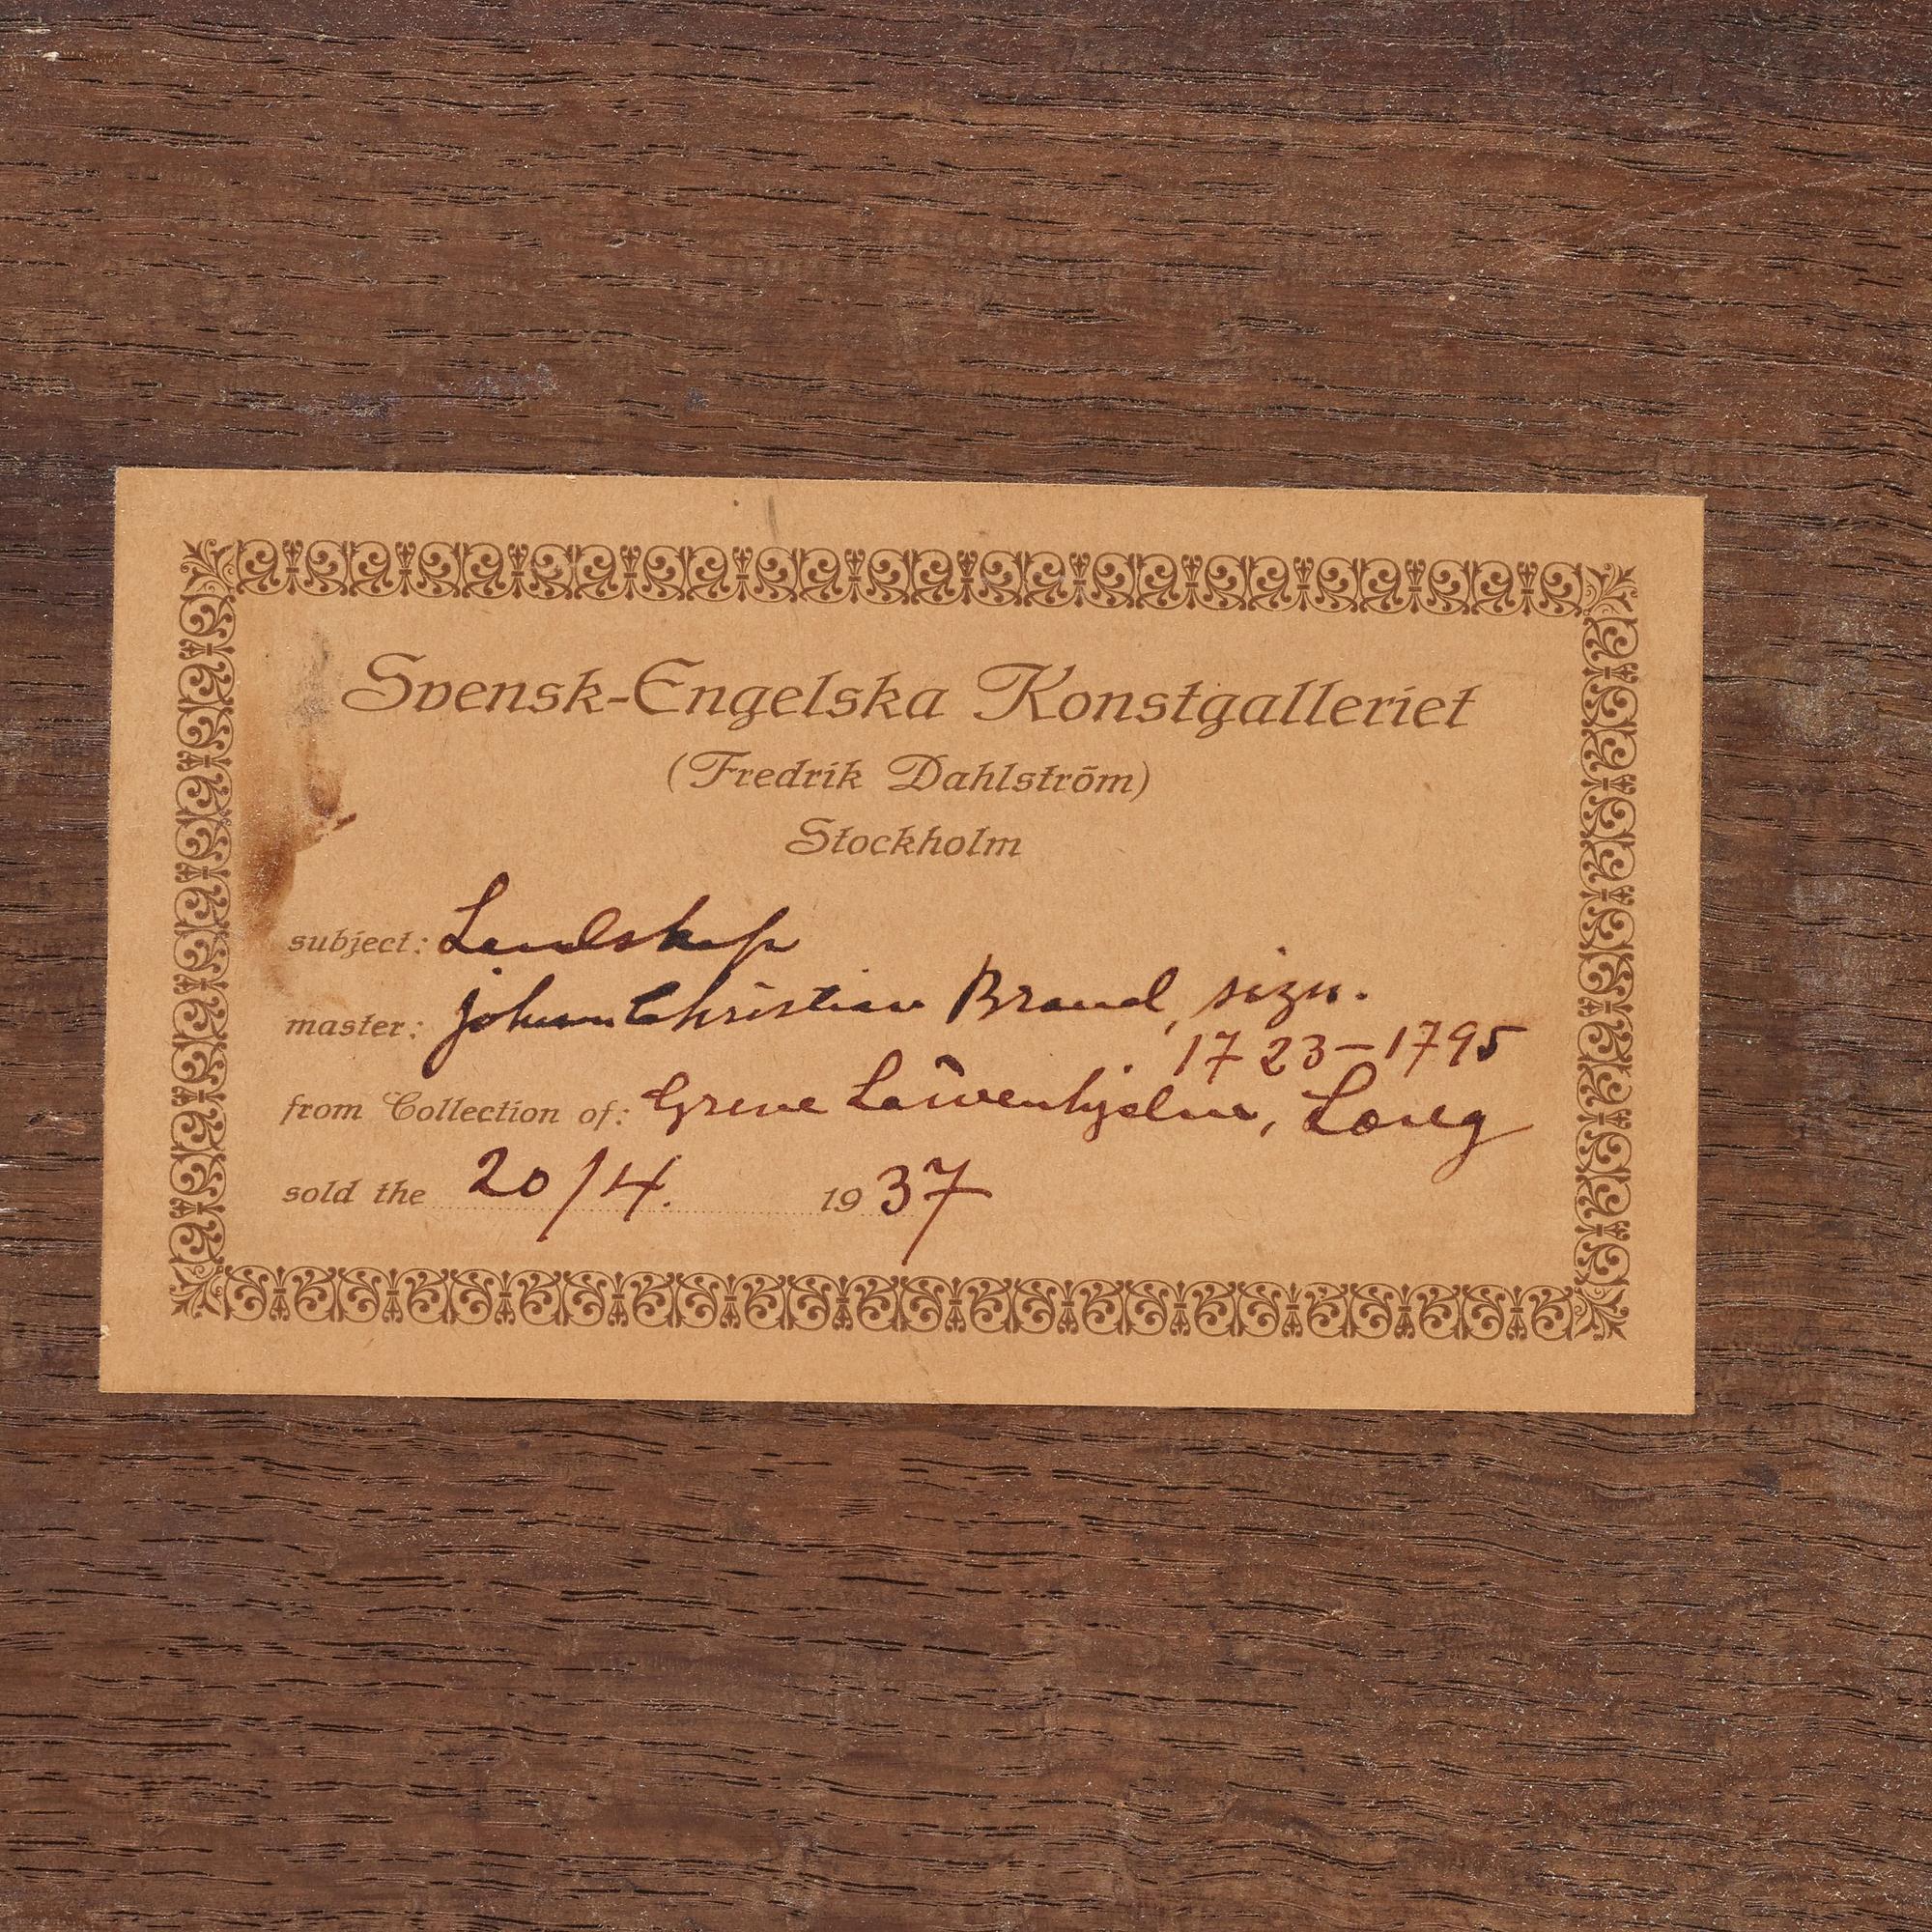 Svensk-Engelska Konstgalleriet
(Fredrik Dahlström)
Stockholm
subject: Landskap
master: Johann Christian Brand, sign.
1723-1795
from Collection of: Greve Löwenhjelm, Long
sold the 20/4. 1937